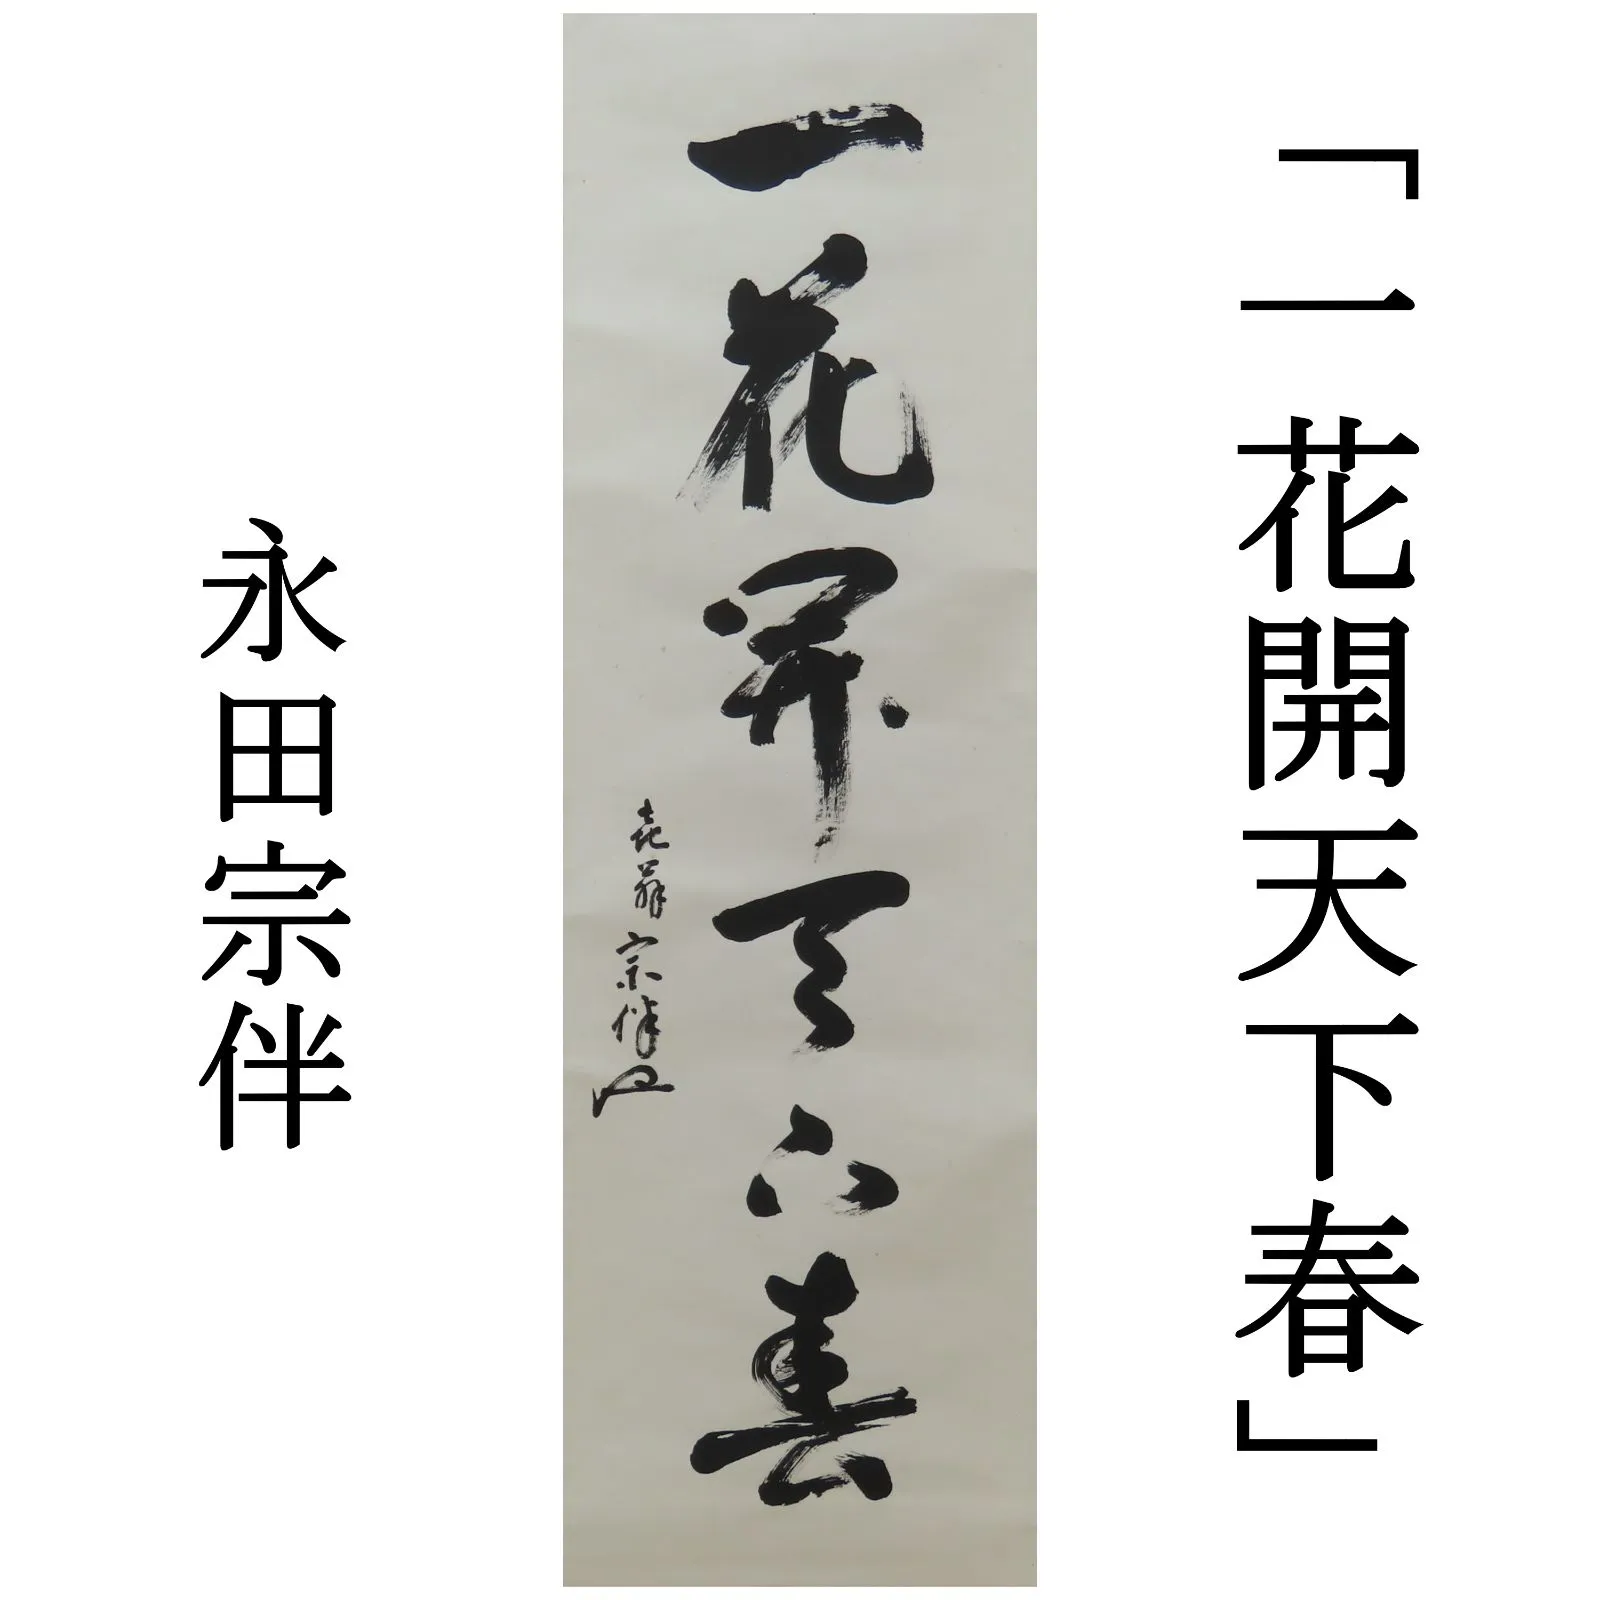 「一花開天下春」
一花開天下春
喜翁 宗伴
永田宗伴